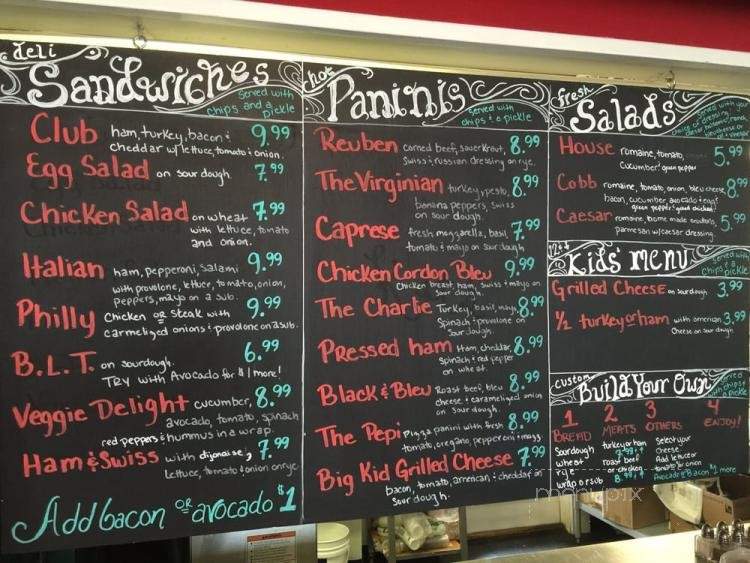 deli
Sandwiches
served with
chips and a
pickle
Club ham, turkey, bacon & 9.99
cheddar w/ lettuce, tomato & onion.
Egg Salad on sourdough. 7.99
Chicken Salad on wheat 7.99
with lettuce, tomato
and onion.
Italian ham, pepperoni, salami 9.99
with provolone, lettuce, tomato, onion,
peppers, mayo on a sub.
Philly Chicken or steak with 9.99
carmeliged onions & provolone on a sub.
B.L.T. on sourdough. 6.99
Try with Avocado for $1 more!
Veggie Delight cucumber, 8.99
avocado, tomato, spinach
red peppers & hummus in a wrap.
Ham & Swiss with dijonaise, 7.99
lettuce, tomato & onion on rye.
Add bacon or avocado $1
hot
Paninis
served with
chips & a pickle
Reuben corned beef, sauerkraut, 8.99
Swiss & russian dressing on rye.
The Virginian turkey, pesto, 8.99
banana peppers, swiss
on sour dough.
Caprese fresh mozzarella, basil, 7.99
tomato & mayo on sour dough
Chicken Cordon Bleu 9.99
Chicken breast, ham, swiss & mayo on
sour dough.
The Charlie Turkey, basil, mayo, 8.99
Spinach & provolone on
sour dough.
Pressed ham Ham, cheddar, 8.99
spinach & red pepper
on wheat.
Black & Bleu Roast beef, bleu 8.99
cheese & carameliged onion
on sour dough.
The Pepi Pizza panini with fresh 8.99
tomato, oregano, pepperoni & mozz.
Big Kid Grilled Cheese 7.99
bacon, tomato, american & cheddar on
sour dough.
fresh
Salads
served with your
choice of dressing
House romaine, tomato, 5.99
cucumber & green pepper
Cobb romaine, tomato, onion, bleu cheese, 8.99
bacon, cucumber, avocado & egg &
green pepper & good chicken!
Caesar romaine, home made croutons, 5.99
parmesan w/ caesar dressing.
Kids' menu
served with
chips & a
pickle
Grilled Cheese on sourdough. 3.99
1/2 turkey or ham with american 3.99
Cheese on sour dough.
custom
Build Your Own
served
with chips
& a pickle
1 2 3 4
BREAD MEATS OTHERS ENJOY!
Sourdough
wheat
rye
wrap or sub
turkey or ham
7.99
roast beef
or chicken
8.99
Select your
Cheese
Add lettuce or
tomato or onion
Avocado & Bacon $1 more
menupix